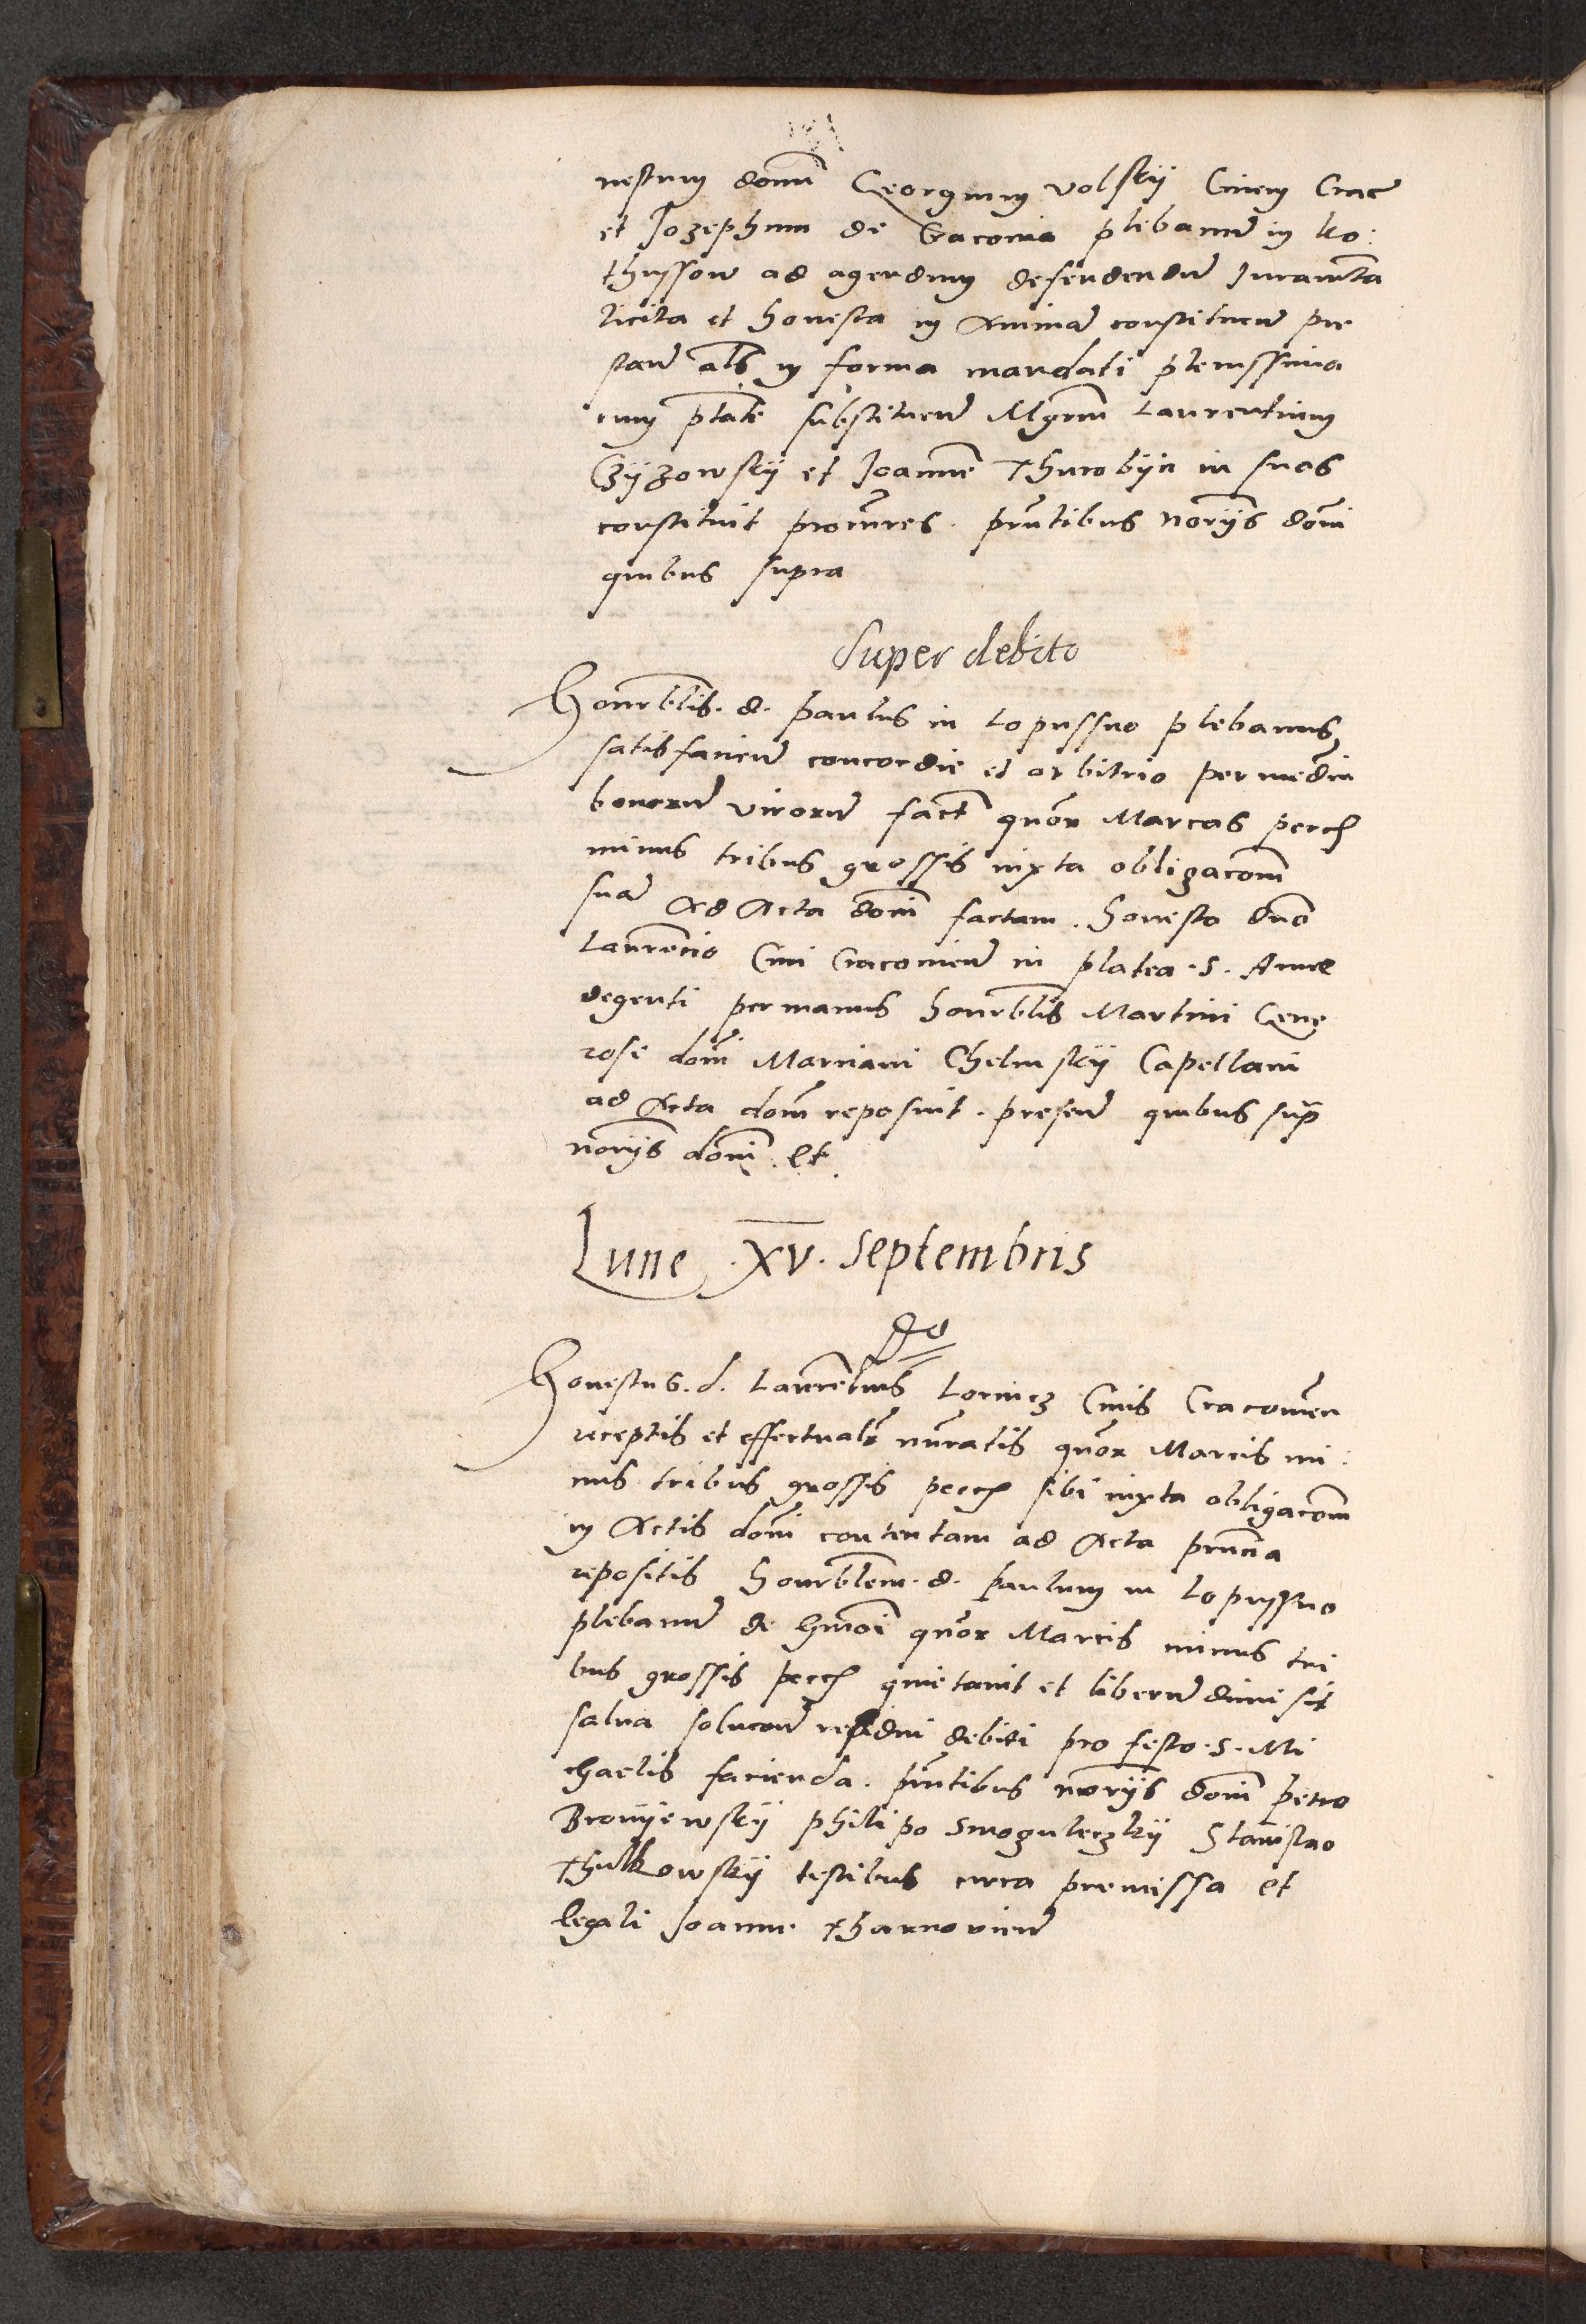 nestum domi Georgium Volskij Civem Crac
et Jozephum de Cracovia plebanum in Ko:
thussow ad agendum defendendum Juramta
licita et honesta in Animam constituen pre
stan als in forma mandati plenissima
cum ptate substituen Mgrm Laurentium
Czyzowskij et Joannem Thurobijn in suos
constituit procures. pntibus norijs domi
quibus supra
Super debito
Honrblis. d. Paulus in Lopussno plebanus,
satisfacien concordie et arbitrio per mediu
bonorum virorum fact quor Marcas pecch
minus tribus grossis iuxta obligacom
suam Ad Acta domi factam. Honesto dno
Laurencio Civi Cracovien in platea .S. Anne
degenti per manus honrblis Martini Gene
rosi domi Marciani Chelmskij Capellani
ad Acta domi reposuit. presen quibus supra
norijs domi. et.
Lune .XV. Septembris
Honestus. d. Laurentius Lorincz Civis Cracovien
receptis et effectualr numratis quor Marcis mi:
nus tribus grossis pecch sibi iuxta obligacom
in Actis domi contentam ad Acta prntia
repositis Honrblem. d. Paulum in Lopussno
plebanum de hmoi quor Marcis minus tri
bus grossis pecch quietavit et liberum dimisit
salva solucone residui debiti pro festo .S. Mi
chaelis facienda. pntibus norijs domi Petro
Bronijewskij Philipo Smoguleczkij Stanislao
Thulkowskij testibus circa premissa et
legali Joanne Tharnovien